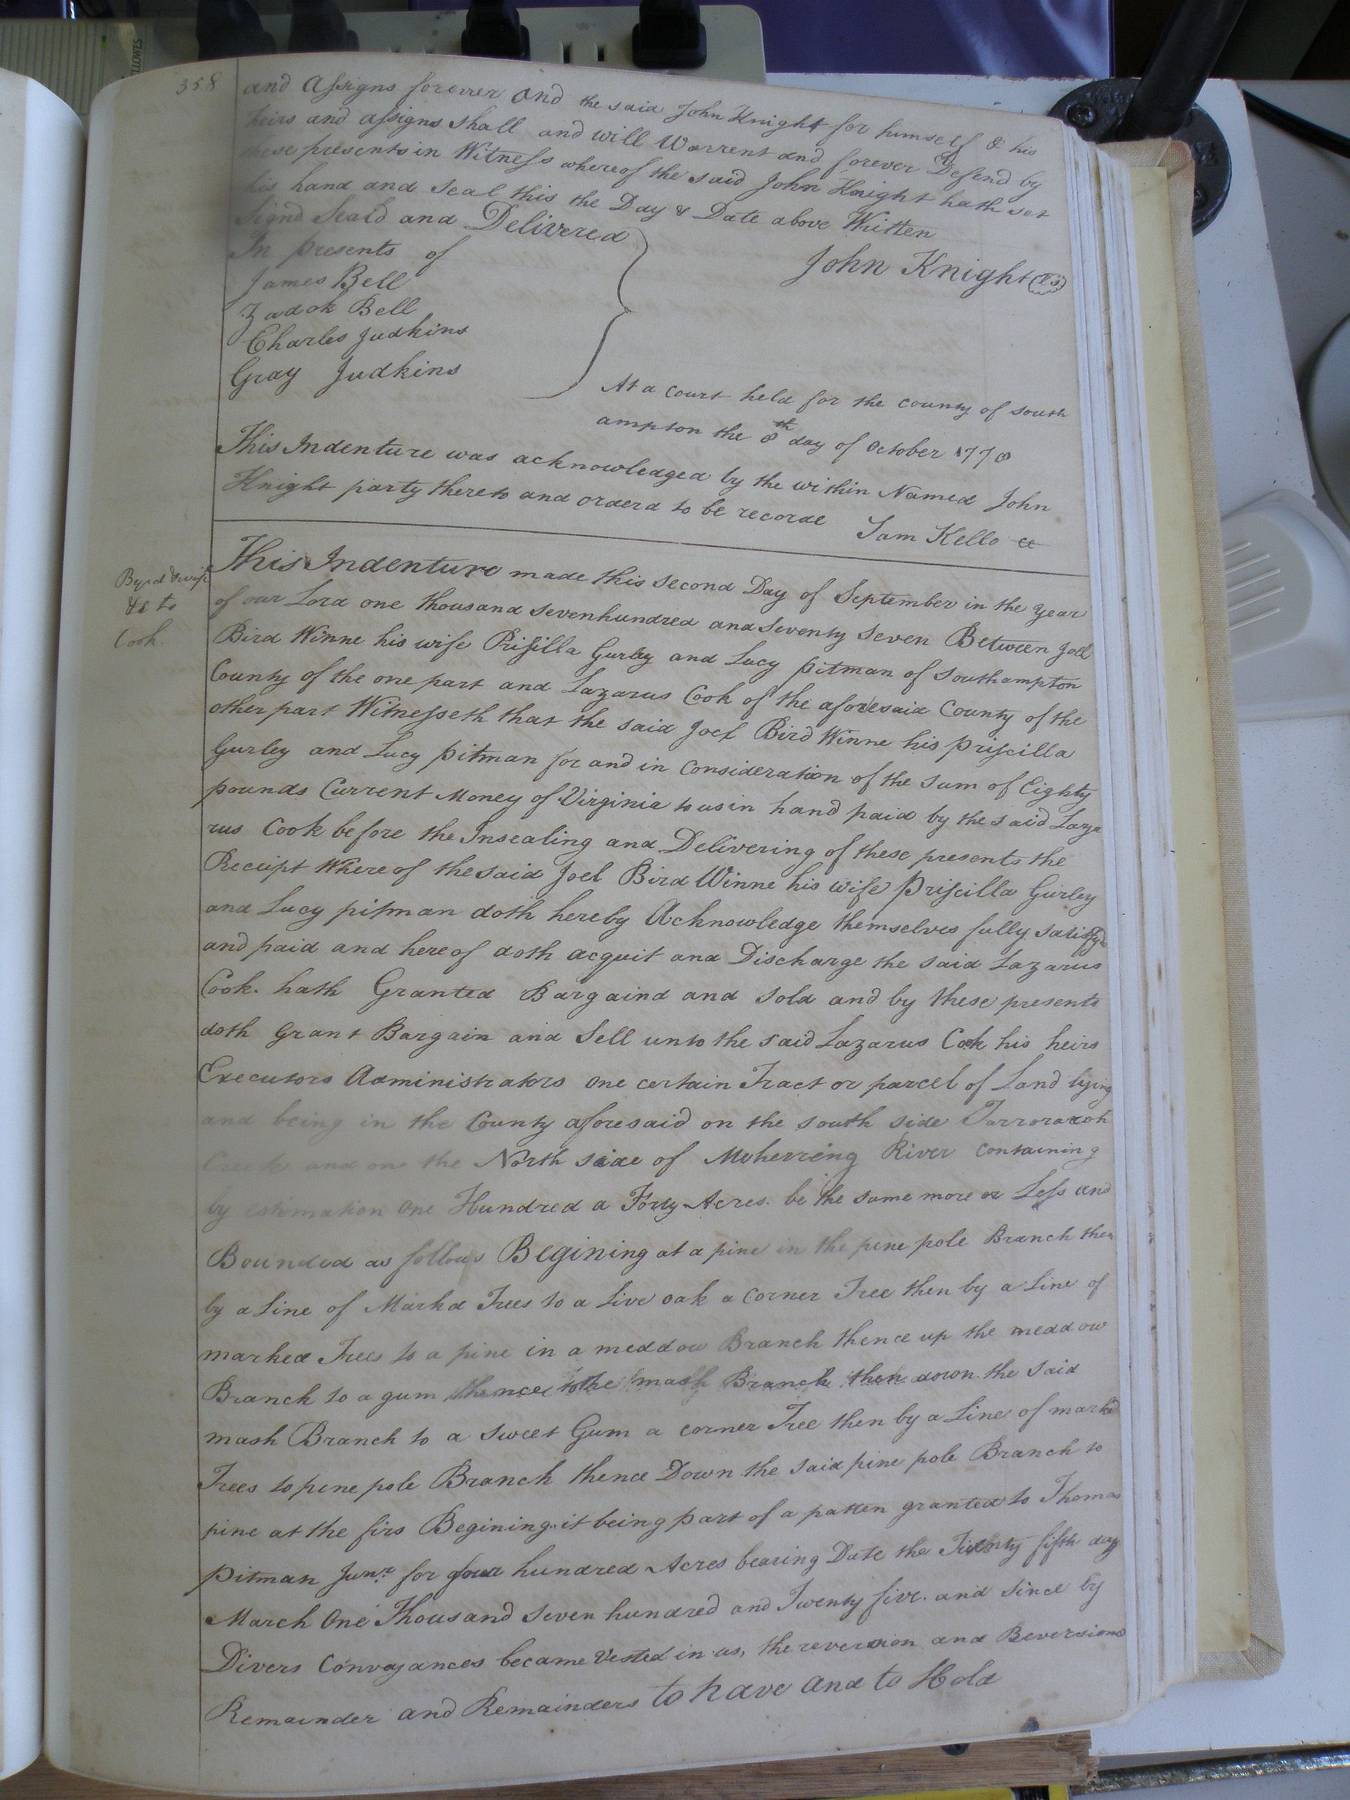 358
and Assigns forever and the said John Knight for himself & his
heirs and assigns shall and will Warrent and forever Defend by
these presents in Witness whereof the said John Knight hath set
his hand and seal this the Day & Date above Written
Signd Seald and Delivered
In presents of
John Knight (LS)
James Bell
Zadok Bell
Charles Judkins
Gray Judkins
At a court held for the county of south
ampton the 8th day of October 1778
This Indenture was acknowledged by the within Named John
Knight party thereto and orderd to be recorde
Sam Kello cc
Byrd & wife
&c to
Cook
This Indenture made this second Day of September in the year
of our Lord one thousand sevenhundred and seventy seven Between Joel
Bird Winne his wife Prisilla Gurley and Lucy pitman of Southampton
County of the one part and Lazarus Cook of the aforesaid County of the
other part Witnesseth that the said Joel Bird Winne his priscilla
Gurley and Lucy pitman for and in Consideration of the sum of Eighty
pounds Current Money of Virginia to us in hand paid by the said Laza
rus Cook before the Insealing and Delivering of these presents the
Receipt Where of the said Joel Bird Winne his wife Priscilla Gurley
and Lucy pitman doth hereby Acknowledge themselves fully satisfyd
and paid and hereof doth acquit and Discharge the said Lazarus
Cook. hath Granted Bargaind and sold and by these presents
doth Grant Bargain and Sell unto the said Lazarus Cook his heirs
Executors Administrators one certain Tract or parcel of Land lying
and being in the County aforesaid on the south side Tarrorarah
Creek and on the North side of Meherring River Containing
by estimation one Hundred a Forty Acres. be the same more or Less and
Bounded as follows Begining at a pine in the pine pole Branch then
by a Line of Markd Trees to a Live oak a Corner Tree then by a Line of
marked Trees to a pine in a meddow Branch thence up the meddow
Branch to a gum thence to the mash Branch then down the said
mash Branch to a sweet Gum a corner Tree then by a Line of markd
Trees to pine pole Branch thence Down the said pine pole Branch to
pine at the firs Begining it being part of a patten granted to Thomas
pitman Junr. for four hundred Acres bearing Date the Twenty fifth day
March One Thousand seven hundred and Twenty five. and since by
Divers Conveyances became Vested in us, the reversion and Reversions
Remainder and Remainders to have and to Hold